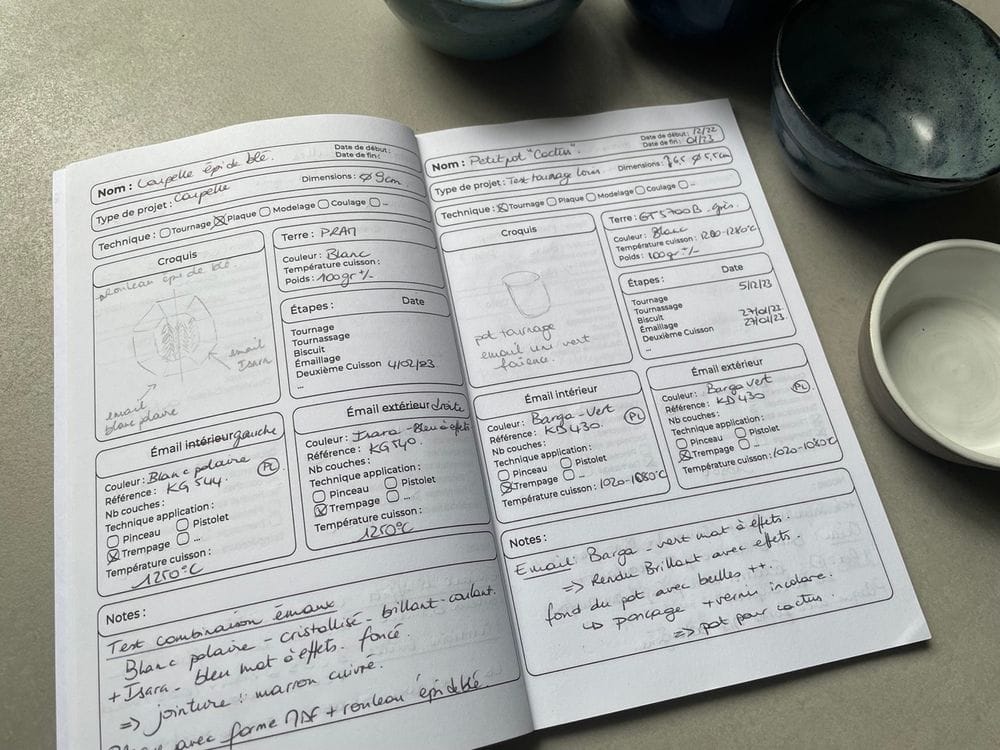 Nom : Coupelle épi de blé.
Date de début :
Date de fin :
Type de projet : Coupelle
Dimensions : Ø 9cm
Technique : Tournage Plaque Modelage Coulage ...
Croquis
rouleau épi de blé.
email
Isara
email
blanc polaire
Terre : PRAM
Couleur : Blanc
Température cuisson :
Poids : 100gr +/-
Étapes : Date
Tournage
Tournassage
Biscuit
Émaillage
Deuxième Cuisson 4/02/23
...
Émail intérieur gauche
Couleur : Blanc polaire
Référence : KG 544. PL
Nb couches :
Technique application :
Pinceau Pistolet
Trempage ...
Température cuisson :
1250°C
Émail extérieur droite
Couleur : Isara - Bleu à effets
Référence : KG 540.
Nb couches :
Technique application :
Pinceau Pistolet
Trempage ...
Température cuisson :
1250°C
Notes :
Test combinaison émaux
Blanc polaire - cristallisé - brillant - coulant.
+ Isara - bleu mat à effets. foncé.
=> jointure : marron cuivré.
avec forme + rouleau épi de blé.
Nom : Petit pot "Cactus"
Date de début : 12/22
Date de fin : 01/23
Type de projet : Test tournage
Dimensions : Ø 5,5cm
Technique : Tournage Plaque Modelage Coulage ...
Croquis
pot tournage
email uni vert
faïence.
Terre : GT 5700B - grès.
Couleur : Blanc
Température cuisson : 1200-1280°C
Poids : 100gr +/-
Étapes : Date
Tournage 5/12/23
Tournassage
Biscuit
Émaillage 27/01/23
Deuxième Cuisson 27/01/23.
...
Émail intérieur
Couleur : Barga - Vert
Référence : KD 430. PL
Nb couches :
Technique application :
Pinceau Pistolet
Trempage ...
Température cuisson : 1020-1080°C
Émail extérieur
Couleur : Barga Vert
Référence : KD 430 PL
Nb couches :
Technique application :
Pinceau Pistolet
Trempage ...
Température cuisson : 1020-1080°C
Notes :
Email : Barga - vert mat à effets.
=> Rendu Brillant avec effets.
fond du pot avec bulles ++.
↳ ponçage + vernis incolore.
=> pot pour cactus.